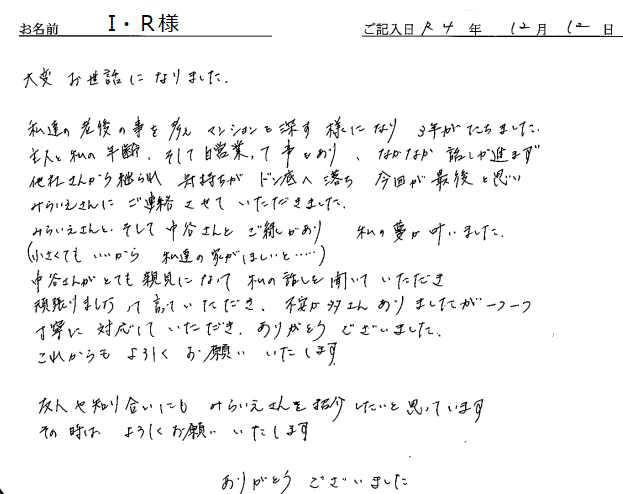 お名前 I・R様 ご記入日 R4年 12月 12日
大変 お世話になりました.
私達の老後の事を考え マンションを探す 様になり 3年がたちました.
主人と私の年齢、そして自営業って事もあり、なかなか 話しが進まず
他社さんから断られ 気持ちが ドン底へ落ち 今回が最後と思い
みらいえさんに ご連絡 させて いただきました.
みらいえさんと、そして 中谷さんと ご縁があり 私の夢が叶いました.
(小さくても いいから 私達の家がほしいと……)
中谷さんがとても親身になって 私の話しを聞いていただき
頑張りましょう って言っていただき、不安が沢さんありましたが一つ一つ
丁寧に 対応して いただき、ありがとう ございました.
これからも よろしく お願い いたします
友人や知り合いにも みらいえさんを紹介したいと思っています
その時は よろしくお願い いたします
ありがとう ございました